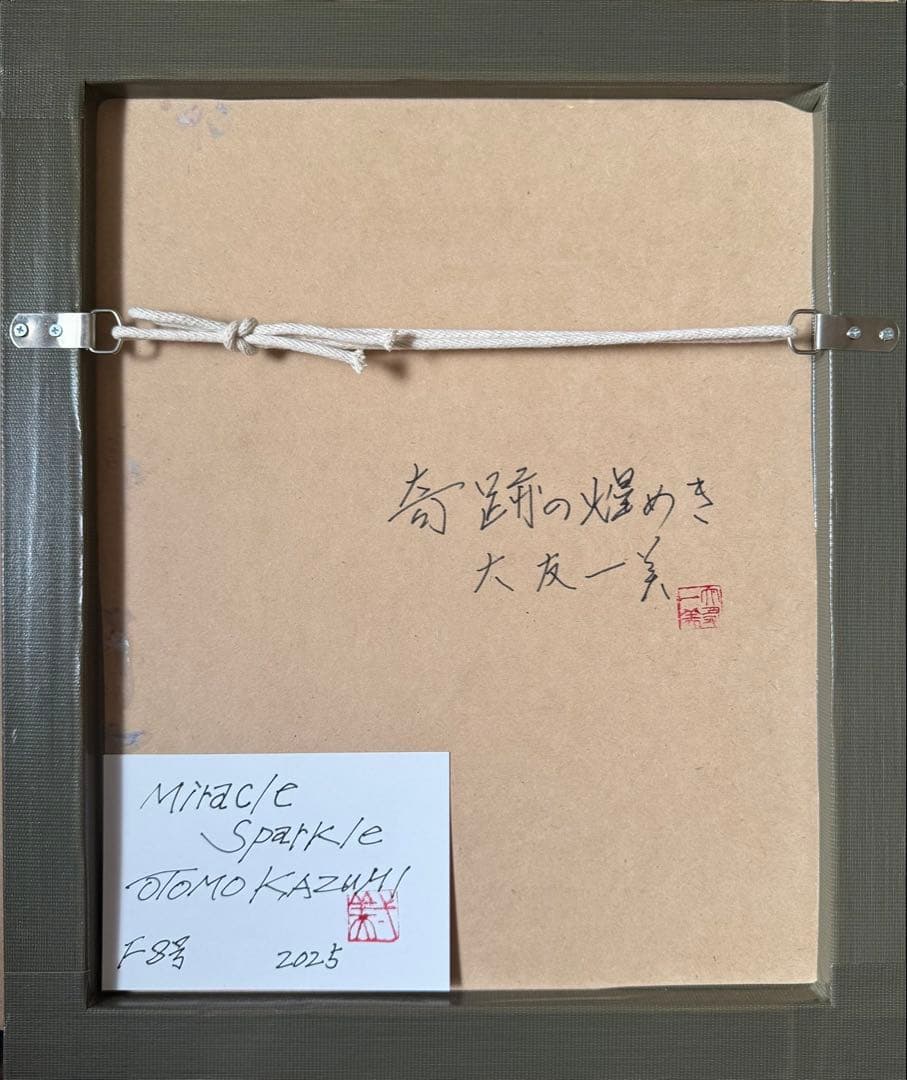 奇跡の煌めき
大友一美
Miracle
Sparkle
OTOMO KAZUMI
F8号 2025